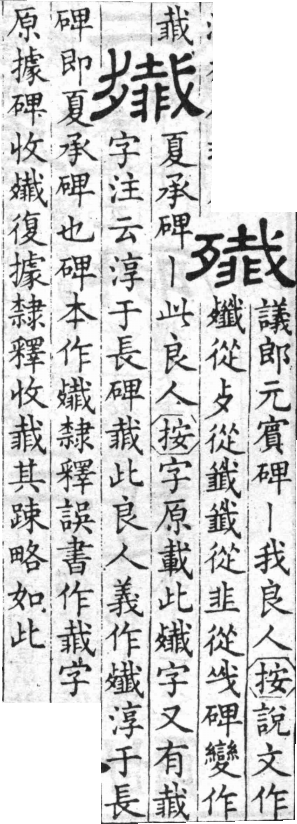 殱
議郎元賓碑丨我良人按說文作
殲從歺從韱韱從韭從㦰碑變作
韯
殱
夏承碑丨此良人按字原載此殲字又有韯
字注云淳于長碑韯此良人義作殲淳于長
碑即夏承碑也碑本作殲隸釋誤書作韯字
原據碑收殲復據隸釋收韯其疎略如此